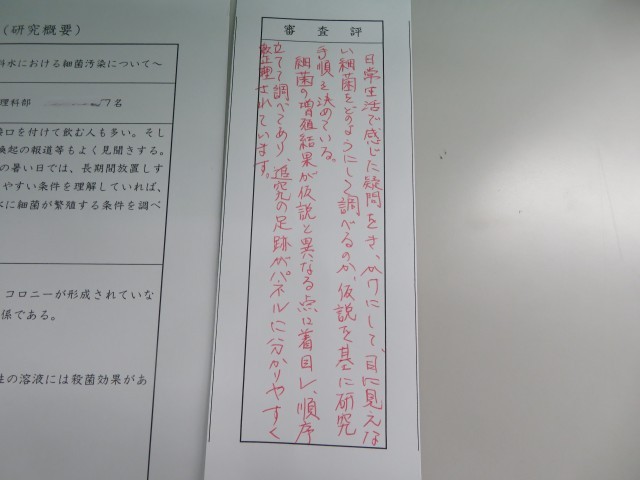 (研究概要)
料水における細菌汚染について～
理科部
7名
口を付けて飲む人も多い。そし
喚起の報道等もよく見聞きする。
の暑い日では、長期間放置しす
やすい条件を理解していれば、
水に細菌が繁殖する条件を調べ
コロニーが形成されていな
係である。
性の溶液には殺菌効果があ
審査評
日常生活で感じた疑問をきっかけにして、目に見えな
い細菌をどのようにして調べるのか、仮説を基に研究
手順を決めている。
細菌の増殖結果が仮説と異なる点に着目し、順序
立てて調べてあり、追究の足跡がパネルに分かりやすく
整理されています。